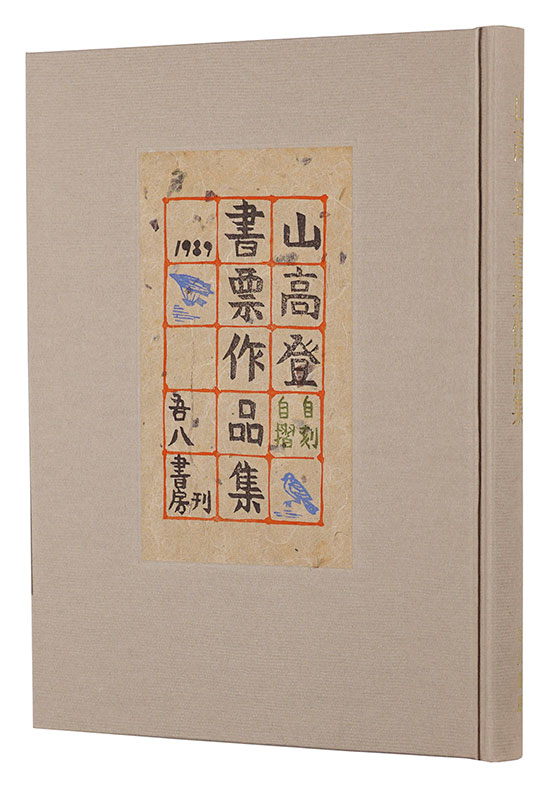 山高登
自刻
自摺
書票作品集
1989
吾八
書房刊